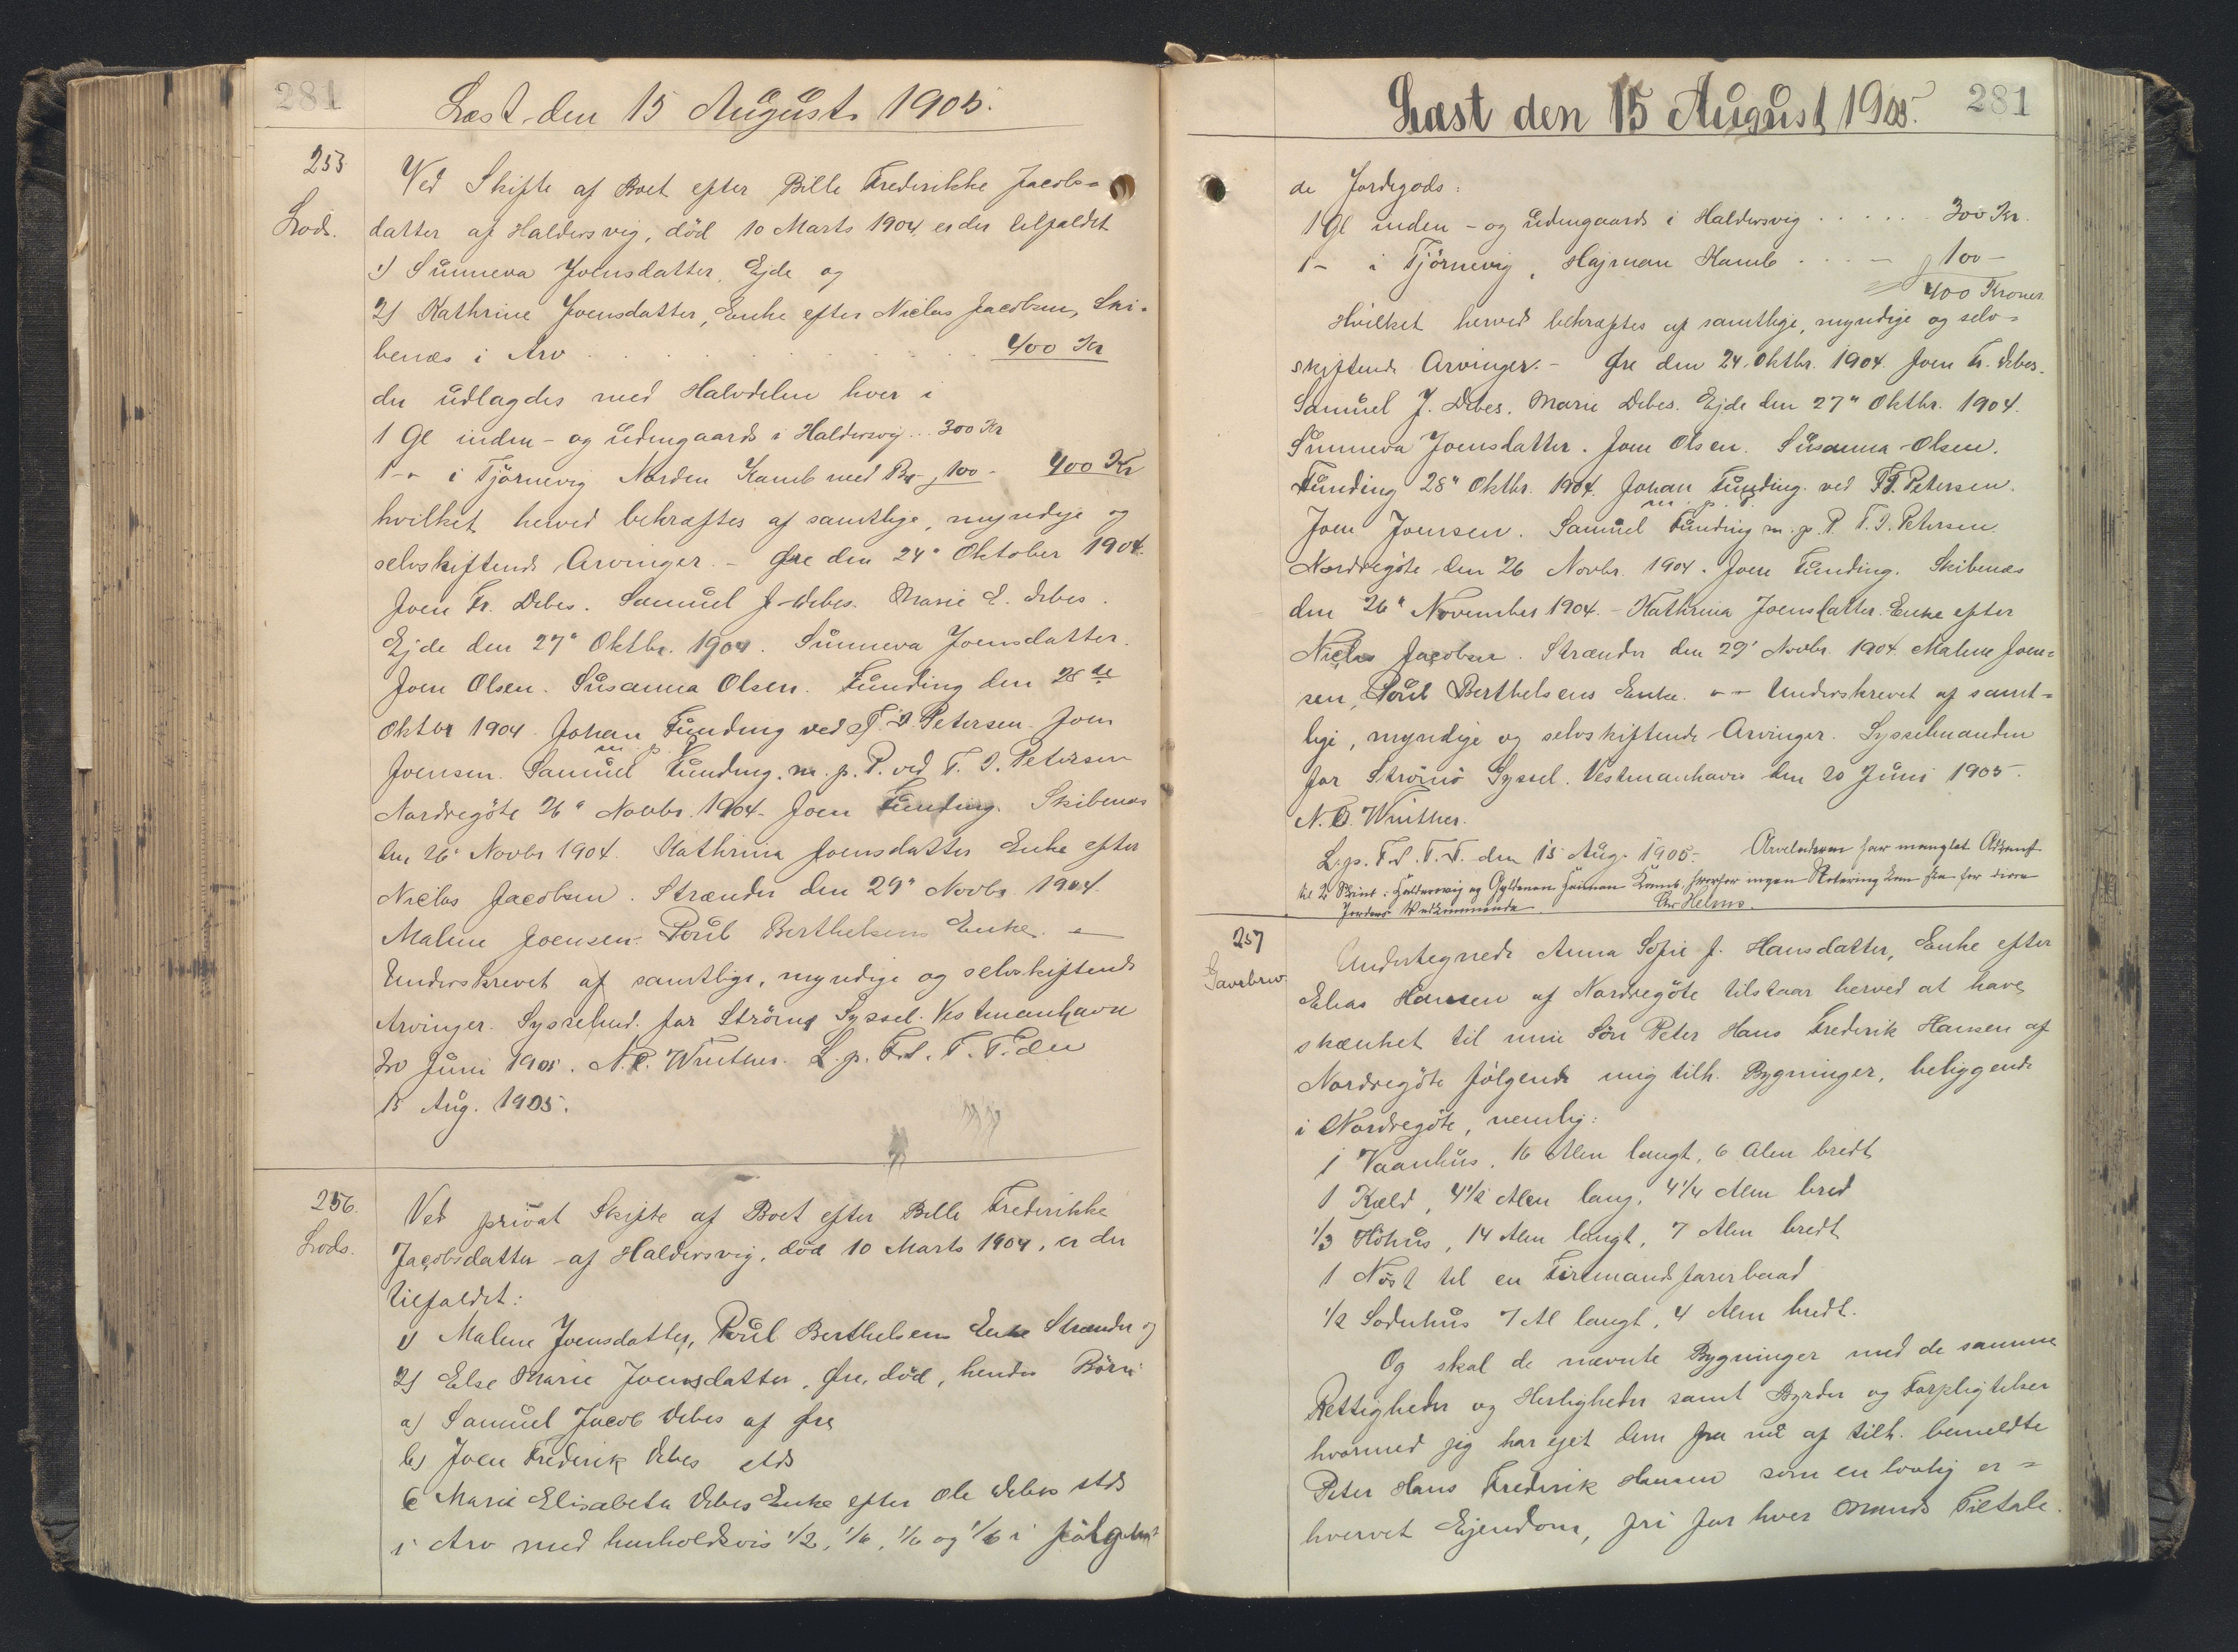 281
Læst den 15 August 1905.
255
Lods.
Ved Skifte af Boet efter Bille Frederikke Jacobs=
datter af Haldersvig, död 10 Marts 1904 er der tilfaldet
1) Sunneva Joensdatter, Ejde og
2) Kathrine Joensdatter, Enke efter Niclas Jacobsen, Ski-
benæs i Arv . . . . . . . . 400 Kr
der udlagdes med Halvdelen hver i
1 Gl inden- og udengaards i Haldersvig ... 300 Kr
1 - - i Tjörnevig Norden Kamb med 100 - 400 Kr
hvilket herved bekræftes af samtlige, myndige og
selvskiftende Arvinger. - Øre den 24" Oktober 1904.
Joen Fr. Debes. Samuel J. Debes. Marie E. Debes.
Ejde den 27" Oktbr. 1904. Sunneva Joensdatter.
Joen Olsen. Susanna Olsen. Funding den 28de
Oktbr 1904. Johan Funding ved F. D. Petersen. Joen
m. p. P.
Joensen. Samuel Funding. m. p. P. ved F. D. Petersen
Nordregöte 26" Novbr. 1904. Joen Funding. Skibenæs
den 26" Novbr 1904. Kathrina Joensdatter Enke efter
Niclas Jacobsen. Strænder den 29" Novbr. 1904.
Malene Joensen. Poul Berthelsens Enke. -
Underskrevet af samtlige, myndige og selvskiftende
Arvinger. Sysselmd. for Strömö Syssel. Vestmanhavn
20 Juni 1905. N. C. Winther. L. p. F. S. T. T. den
15 Aug. 1905.
256.
Lods.
Ved privat Skifte af Boet efter Bille Frederikke
Jacobsdatter af Haldersvig, död 10 Marts 1904, er der
tilfaldet:
1) Malene Joensdatter, Poul Berthelsens Enke Strænder og
2) Else Marie Joensdatter, Øre, död, hendes Börn:
a) Samuel Jacob Debes af Øre
b) Joen Frederik Debes stds
c Marie Elisabeta Debes Enke efter Ole Debes stds
i Arv med henholdsvis 1/2, 1/6, 1/6 og 1/6 i fölgen
Læst den 15 August 1905.
281
de Jordegods:
1 Gl inden- og udengaards i Haldersvig . . . . . . 300 Kr.
1 - i Tjörnevig, Hajman Kamb . . . - 100 -
400 Kroner
Hvilket herved bekræftes af samtlige, myndige og selv=
skiftende Arvinger. - Øre den 24. Oktbr. 1904. Joen Fr. Debes.
Samuel J. Debes. Marie Debes. Ejde den 27" Oktbr. 1904.
Sunneva Joensdatter. Joen Olsen. Susanna Olsen.
Funding 28" Oktbr. 1904. Johan Funding ved F. D. Petersen.
m. p. P.
Joen Joensen. Samuel Funding m. p. P. F. D. Petersen
Nordregöte den 26 Novbr. 1904. Joen Funding. Skibenæs
den 26" November 1904. - Kathrina Joensdatter. Enke efter
Niclas Jacobsen. Strænder den 29' Novbr. 1904. Malene Joen=
sen, Poul Berthelsens Enke. - - Underskrevet af samt=
lige, myndige og selvskiftende Arvinger. Sysselmanden
for Strömö Syssel. Vestmanhavn den 20 Juni 1905.
N. C. Winther.
L. p. F. S. T. T. den 15 Aug. 1905. Arveladeren har manglet Adkomst
til 2 Skind i Haldersvig og Gyldenen Haiman Kamb, hvorfor ingen Notering kan ske for disse
Jorders Vedkommende. Chr Helms.
257
Gavebrev.
Undertegnede Anna Sofie f. Hansdatter, Enke efter
Elias Hansen af Nordregöte tilstaar herved at have
skænket til min Sön Peter Hans Frederik Hansen af
Nordregöte fölgende mig tilh. Bygninger, beliggende
i Nordregöte, nemlig:
1 Vaanhus, 16 Alen langt, 6 Alen bredt
1 Kæld, 4 1/2 Alen lang, 4 1/4 Alen bred
1/3 Höhus, 14 Alen langt, 7 Alen bredt
1 Nöst til en Firemandsfarerbaad
1/2 Sodnhus 7 Al langt, 4 Alen bredt.
Og skal de nævnte Bygninger med de samme
Rettigheder og Herligheder samt Byrder og Forpligtelser
hvormed jeg har ejet dem fra nu af tilh. bemeldte
Peter Hans Frederik Hansen som en lovlig er=
hvervet Ejendom, fri for hver Mands Tiltale.